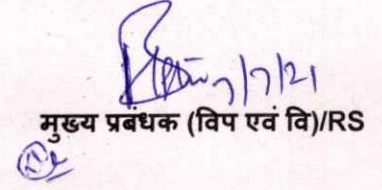 7/7/21
मुख्य प्रबंधक (विप एवं वि)/RS